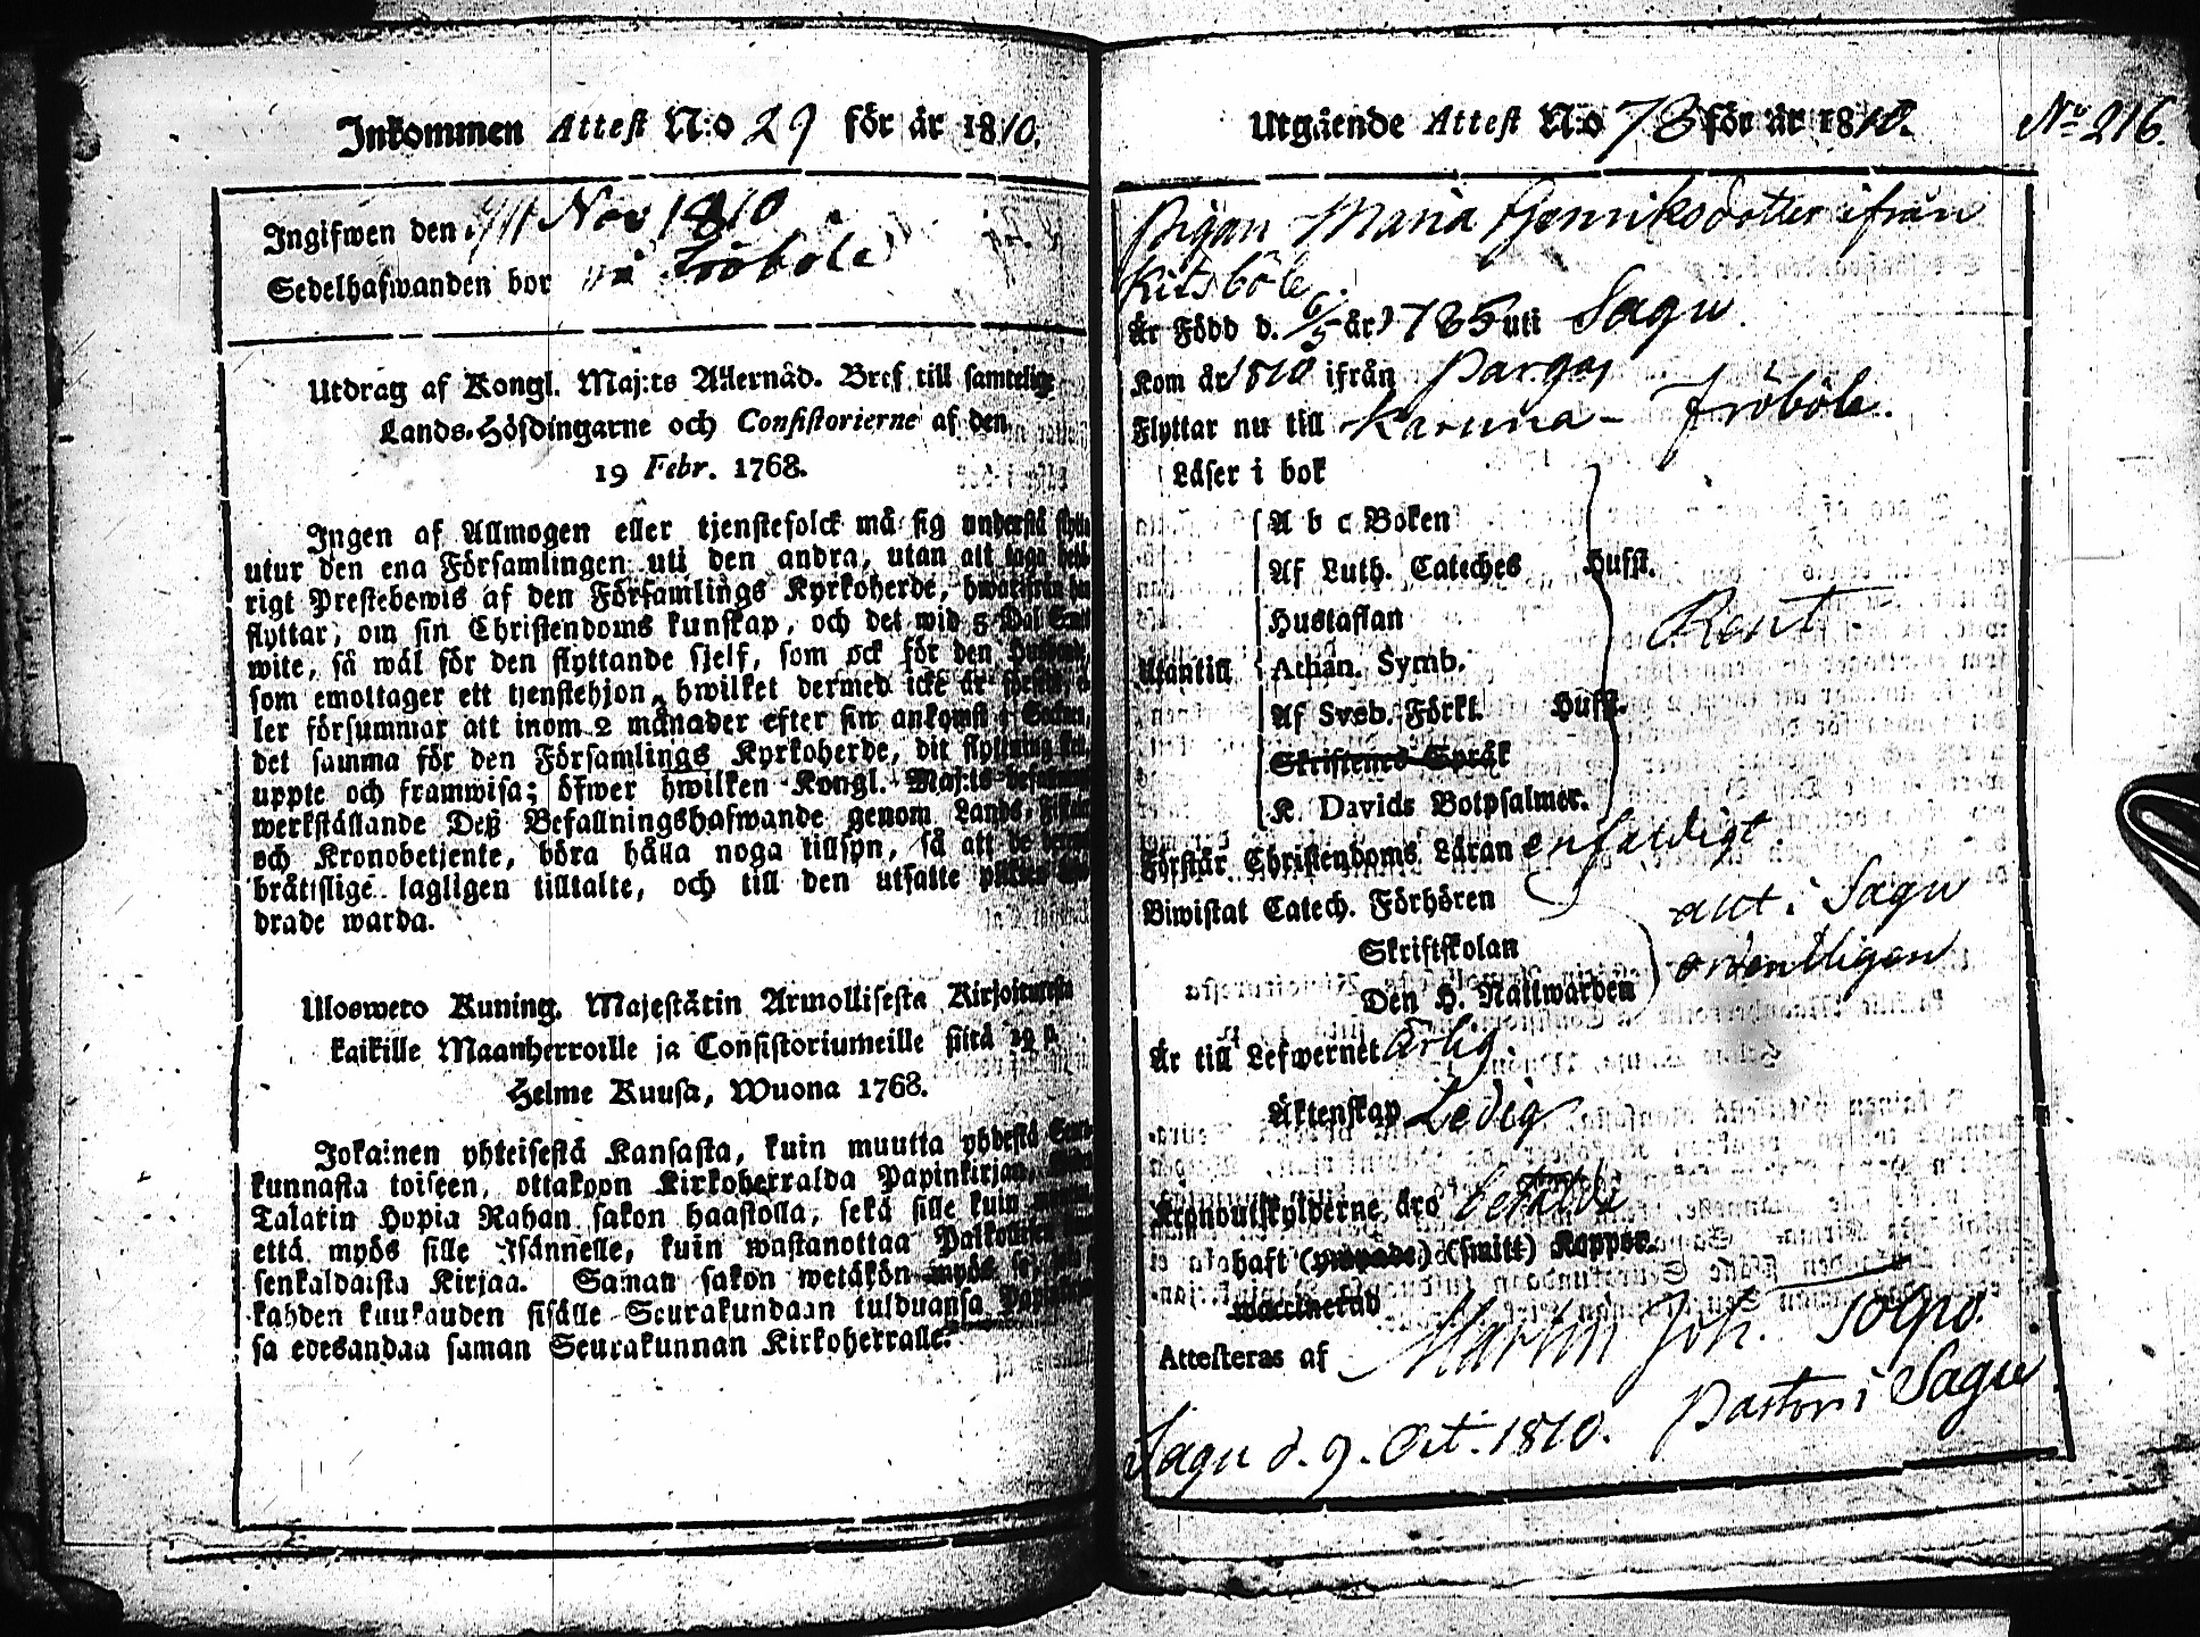 Inkommen Attest N:o 29 för år 1810.
Ingifwen den Nov 1810
Sedelhafwanden bor på Fröböle
Utdrag af Kongl. Maj:ts Allernåd. Bref till samtelige
Lands-Höfdingarne och Consistorierne af den
19 Febr. 1768.
Ingen af Allmogen eller tjenstefolck må sig understå flytta
utur den ena Församlingen uti den andra, utan att taga behö-
rigt Prestebewis af den Församlings Kyrkoherde, hwarifrån han
flyttar, om sin Christendoms kunskap, och det wid 5 Dal. Smt
wite, så wäl för den flyttande sjelf, som ock för den Husbonde,
som emottager ett tjenstehjon, hwilket dermed icke är försedt, el-
ler försummar att inom 2 månader efter sin ankomst i Socknen,
det samma för den Församlings Kyrkoherde, dit flyttning sker,
uppte och framwisa; öfwer hwilken Kongl. Maj:ts befallning
werkställande Deß Befallningshafwande genom Lands-Fiskaler
och Kronobetjente, böra hålla noga tillsyn, så att de
bråttslige lagligen tilltalte, och till den utsatte plikten
drade warda.
Ulosweto Kuning. Majestätin Armollisesta Kirjoituxesta
kaikille Maanherroille ja Consistoriumeille siitä 19 p.
Helme Kuusa, Wuona 1768.
Jokainen yhteisestä Kansasta, kuin muutta yhdestä Seura-
kunnasta toiseen, ottakoon Kirkoherralda Papinkirjan,
Talarin Hopia Rahan sakon haastolla, sekä sille kuin muutta,
että myös sille Isännelle, kuin wastanottaa Palkollisen
senkaldaista Kirjaa. Saman sakon wetäkön myös se,
kahden kuukauden sisälle Seurakundaan tulduansa
sa edesandaa saman Seurakunnan Kirkoherralle.
Utgående Attest N:o 78 för år 1810. No 216.
Pigan Maria Henriksdotter ifrån
Kitsböle
Är Född d. 6/5 år 1785 uti Sagu.
Kom år 1810 ifrån Pargas
Flyttar nu till Karuna - Fröböle.
Läser i bok
A b c Boken
Af Luth. Cateches Hufst.
Hustaflan
Rent
Utantill Athan. Symb.
Af Sveb. Förkl. Hufst.
Skriftenes Språk
K. Davids Botpsalmer.
Förstår Christendoms Läran enfaldigt.
Biwistat Catech. Förhören
ant. i Sagu
Skriftskolan
ordentligen
Den H. Nattwarden
Är till Lefwernet Ärlig.
Äktenskap Ledig
Kronoutskylderne äro betalde
haft (ympade) (smitt) Koppor.
waccinerad
Attesteras af Martin Joh. Tolpo.
Pastor i Sagu
Sagu d. 9. Oct. 1810.